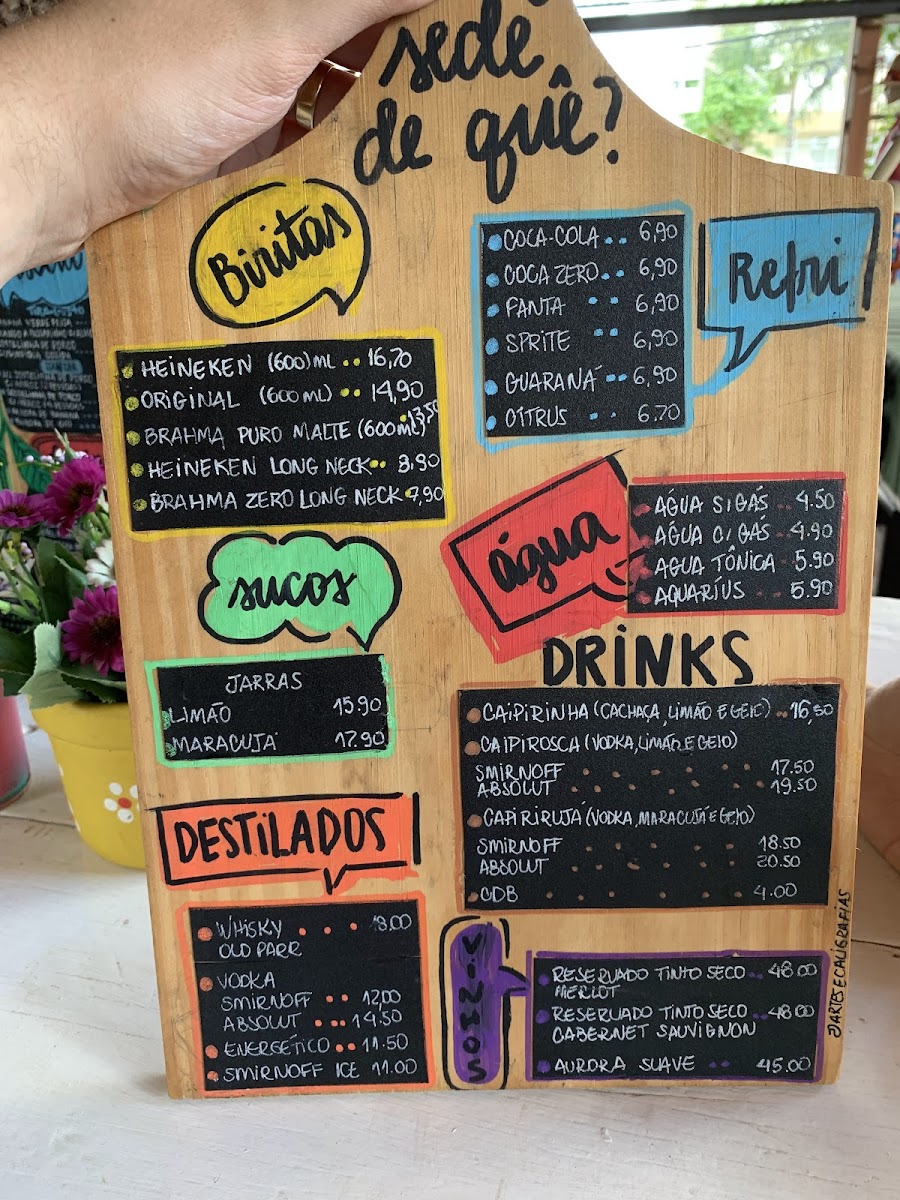 sede
de quê?
Biritas
HEINEKEN (600)ml .. 16,70
ORIGINAL (600ml) .. 14,90
BRAHMA PURO MALTE (600ml) .. 13,50
HEINEKEN LONG NECK .. 8,90
BRAHMA ZERO LONG NECK . 7,90
Refri
COCA-COLA .. 6,90
COCA ZERO .. 6,90
FANTA .. 6,90
SPRITE .. 6,90
GUARANÁ .. 6,90
CITRUS .. 6.70
água
AGUA S/GÁS .. 4.50
AGUA C/GÁS .. 4.90
AGUA TÔNICA . 5.90
AQUARIUS .. 5.90
sucos
JARRAS
LIMÃO 15.90
MARACUJÁ 17.90
DRINKS
CAIPIRINHA (CACHAÇA, LIMÃO E GELO) .. 16,50
CAIPIROSCA (VODKA, LIMÃO E GELO)
SMIRNOFF . . . . . 17.50
ABSOLUT . . . . . 19.50
CAPIRIRUJÁ (VODKA, MARACUJÁ E GELO)
SMIRNOFF . . . . . 18.50
ABSOLUT . . . . . 20.50
CDB . . . . . 4.00
DESTILADOS
WHISKY . . . 18.00
OLD PARR
VODKA
SMIRNOFF .. 12,00
ABSOLUT ... 14.50
ENERGÉTICO .. 11.50
SMIRNOFF ICE 11.00
VINHOS
RESERVADO TINTO SECO .. 48.00
MERLOT
RESERVADO TINTO SECO .. 48.00
CABERNET SAUVIGNON
AURORA SUAVE .. 45.00
@ARTESECALIGRAFIAS